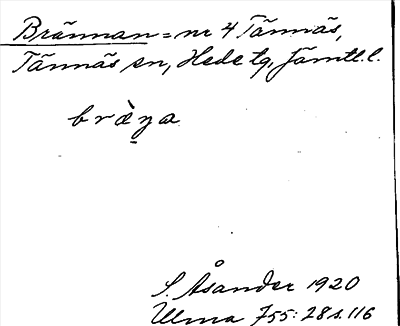 Brännan = nr 4 Tännäs,
Tännäs sn, Hede tg, Jämtl. l.
bræ̀ŋa
S. Åsander 1920
Ulma 755: 28 s. 116